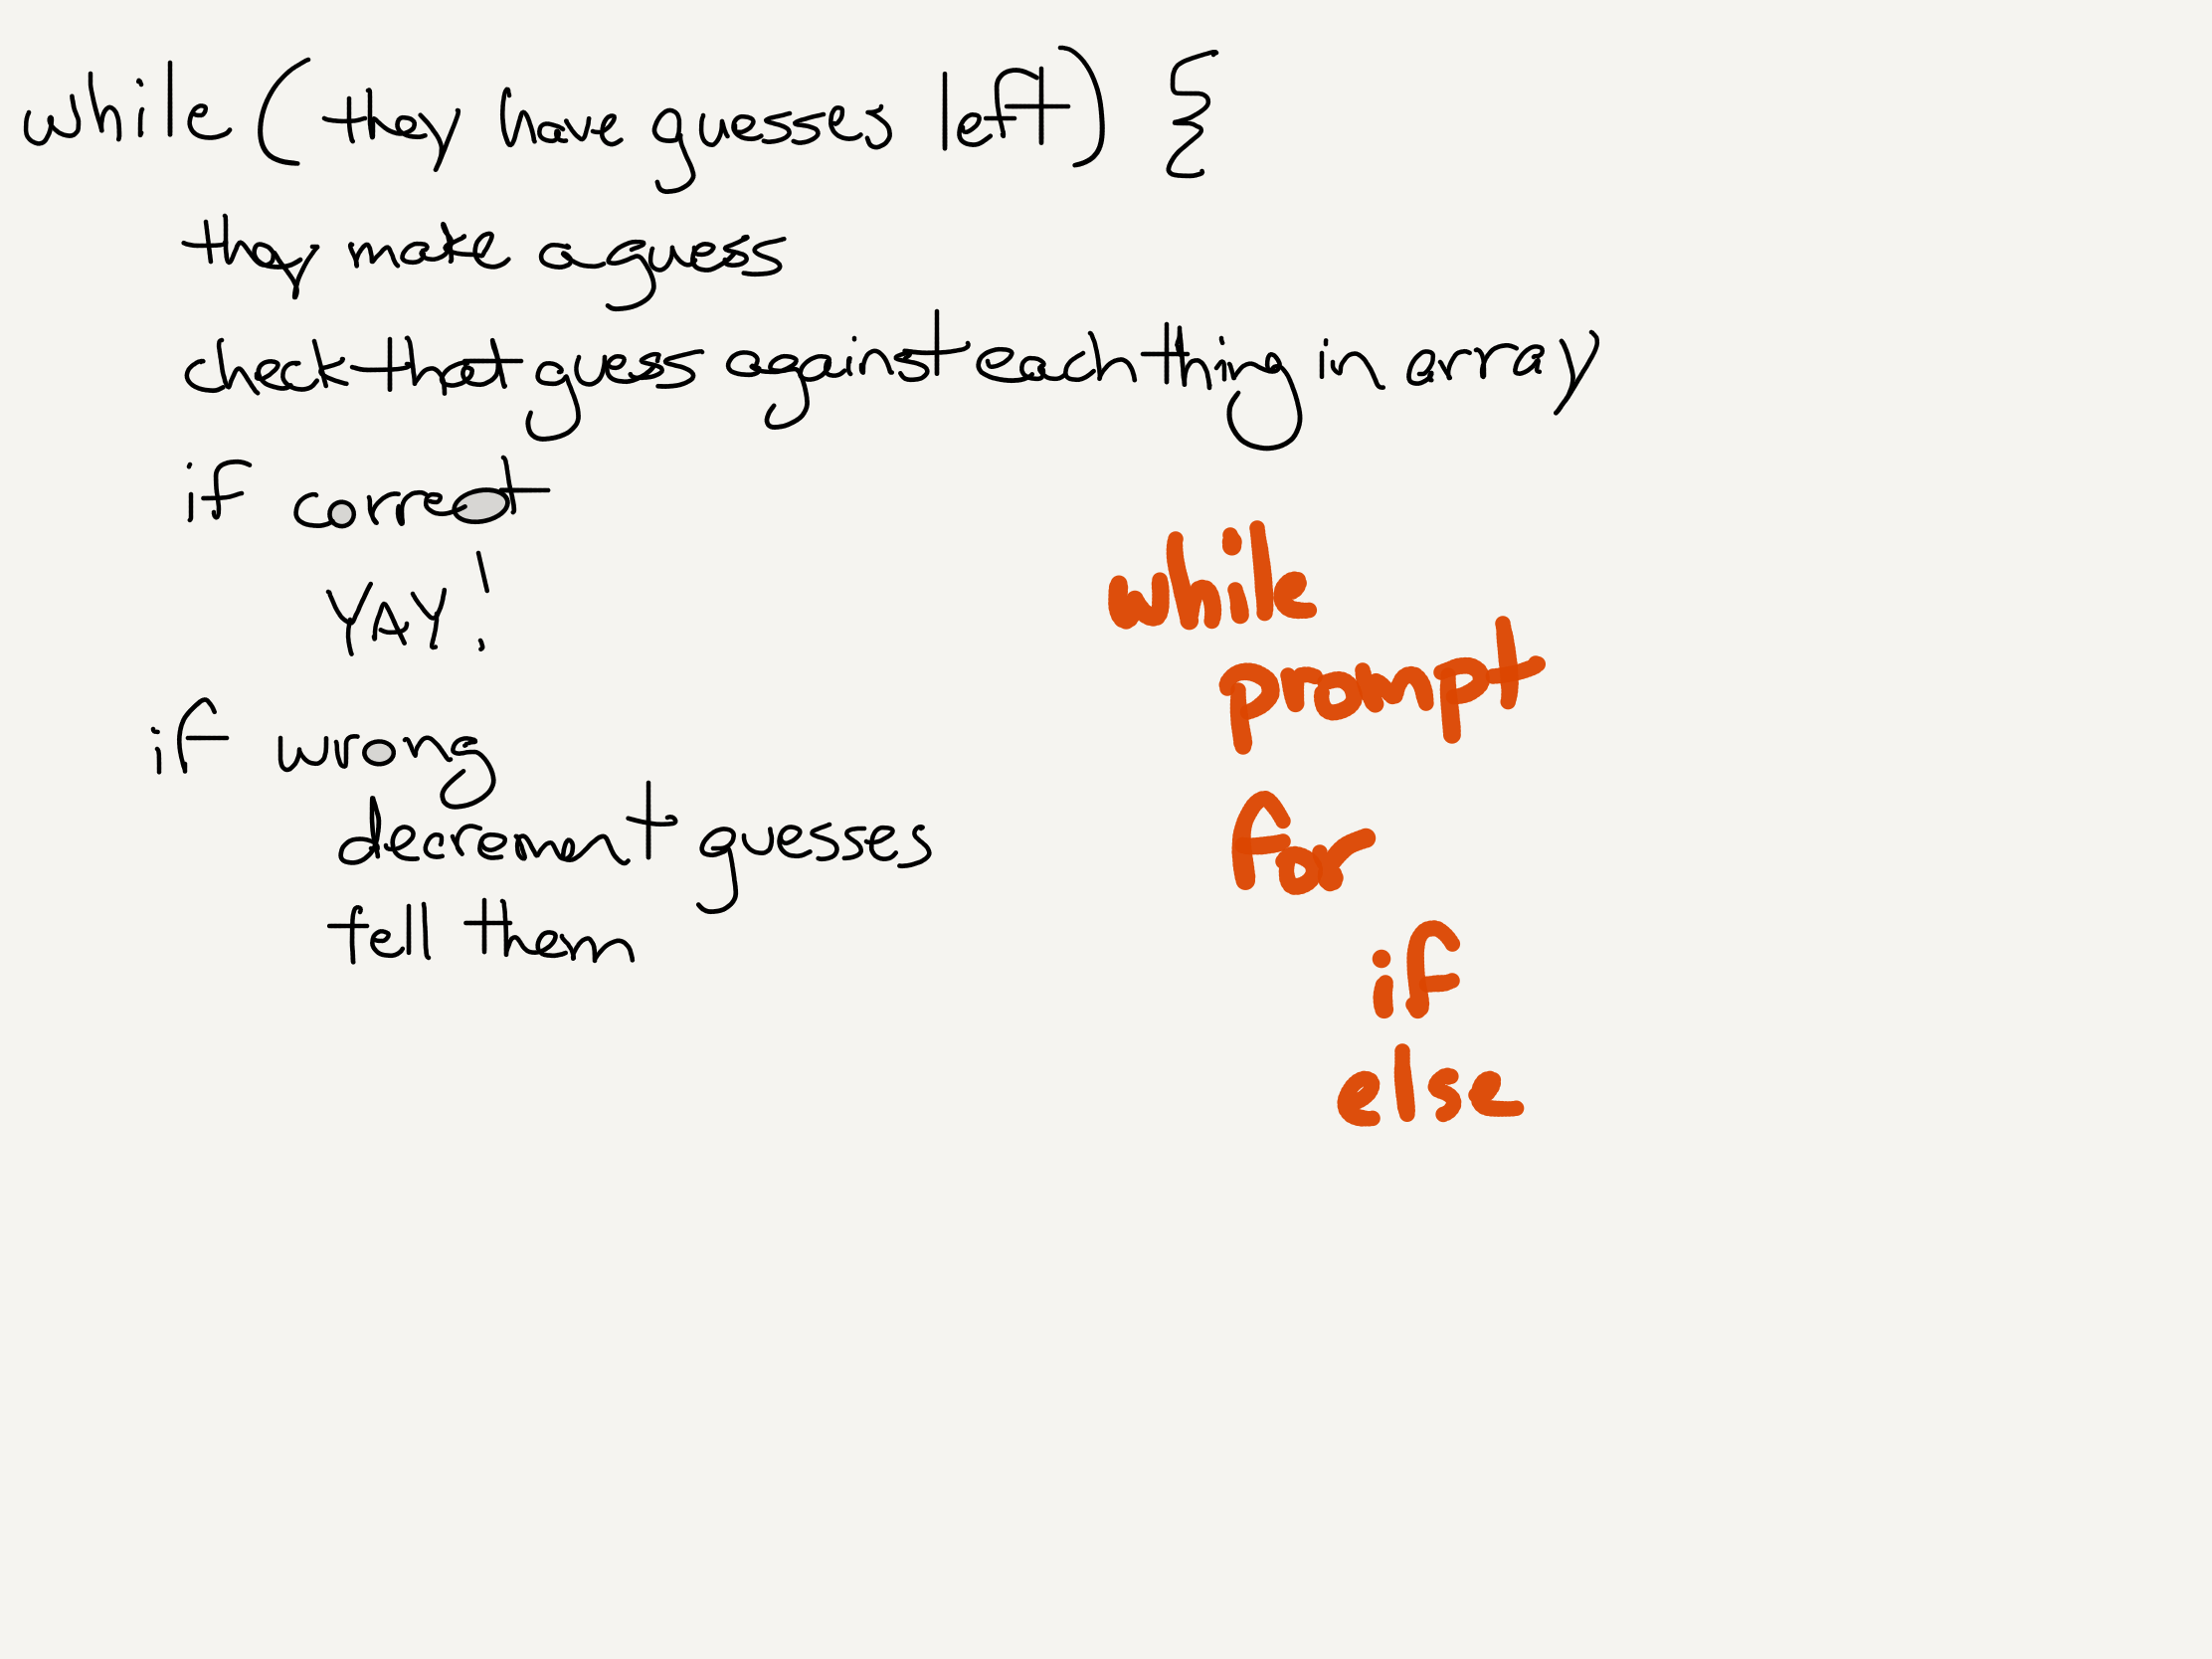 while (they have guesses left) {
they make a guess
check that guess against each thing in array
if correct
YAY!
if wrong
decrement guesses
tell them
while
prompt
for
if
else